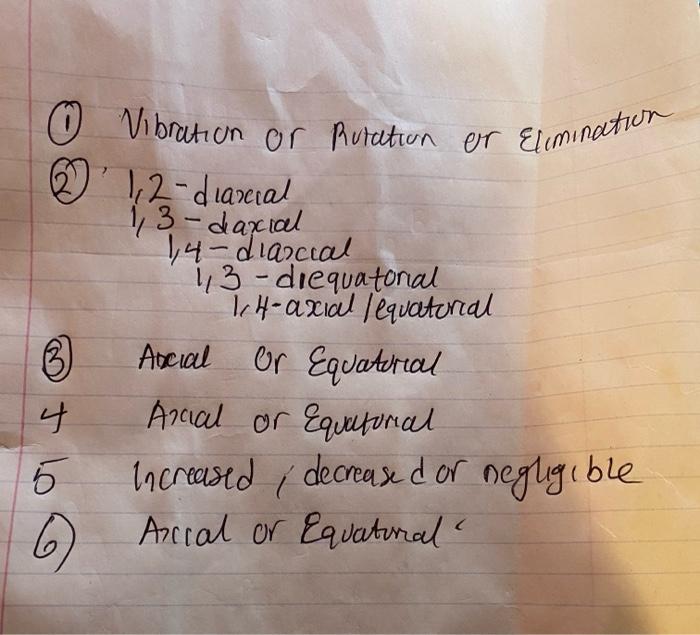 ① Vibration or Rotation or Elimination
② 1,2-diaxial
1,3-daxial
1,4-diaxial
1,3-diequatorial
1,4-axial/equatorial
③ Axial or Equatorial
4 Axial or Equatorial
5 Increased, decreased or negligible
⑥ Axial or Equatorial